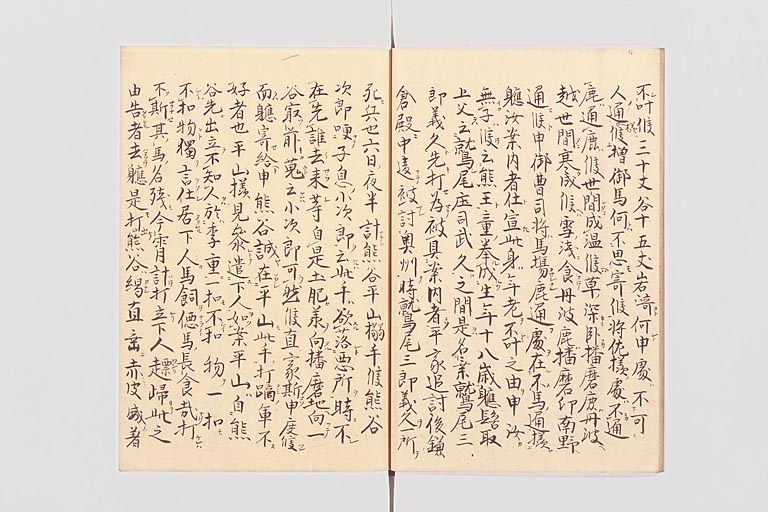 不叶候三十丈谷十五丈岩滸何申處不可
人通候増御馬何不思寄候将依樣處不通
鹿通鹿候世間成温候草深卧播磨鹿丹波
越世間寒成候雪浅食丹波鹿播磨印南野
通候申御曹司将馬場鹿通處在不馬通樣
軈汝案内者仕宣此身年老不叶之由申汝
無子候云熊王童拳成生年十八歳軈髻取
上父云鷲尾庄司武久之間是名乗鷲尾三
郎義久先打為被具案内者平家追討後鎌
倉殿中違被討奥州時鷲尾三郎義久所
死兵也六日夜半計熊谷平山搦手候熊谷
次郎哽子息小次郎云此手欲落悪所時不
在先誰去来等自是土肥兼向播磨地向一
谷寂前蒐云小次郎可然候直家斯申度候
而軈寄給申熊谷誠在平山此手打蹄軍不
好者也平山樣見参遣下人如案平山自熊
谷先出立不知人於季重一扣不扣物一扣
不扣物獨言仕居下人馬飼僡馬長食哉打
不斯其馬名殘今宵計打立下人趨歸此之
由告者去軈是打熊谷褐直垂赤皮威着